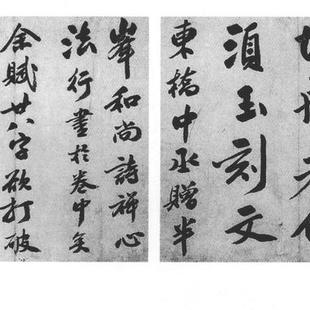 須玉刻文
東橋中丞贈半
峯和尚詩禪心
法行書於卷中矣
余賦廿八字欲打破